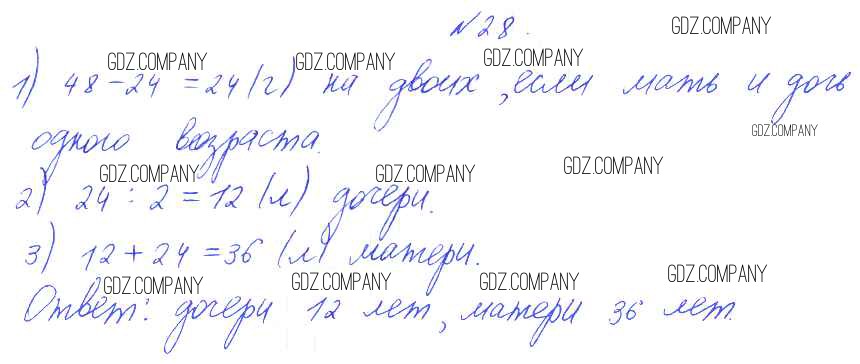 №28.
GDZ.COMPANY
GDZ.COMPANY GDZ.COMPANY GDZ.COMPANY
1) 48-24 = 24 (г) на двоих, если мать и дочь
одного возраста.
GDZ.COMPANY
GDZ.COMPANY GDZ.COMPANY GDZ.COMPANY
2) 24 : 2 = 12 (л) дочери.
3) 12 + 24 = 36 (л) матери.
GDZ.COMPANY GDZ.COMPANY GDZ.COMPANY GDZ.COMPANY
Ответ: дочери 12 лет, матери 36 лет.